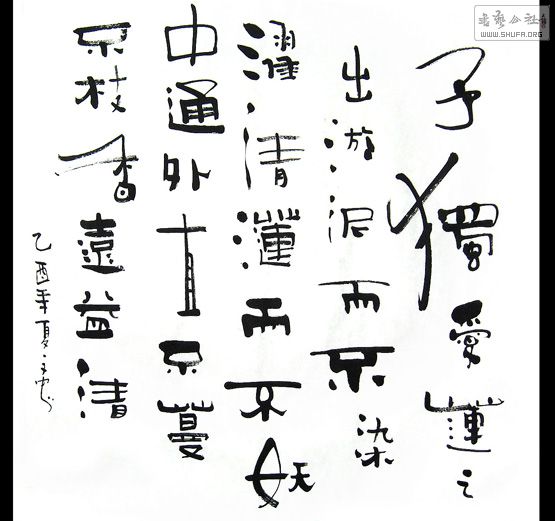 予獨愛蓮之
出淤泥而不染
濯清漣而不妖
中通外直不蔓
不枝香遠益清
乙酉年夏
书艺公社
WWW.SHUFA.ORG